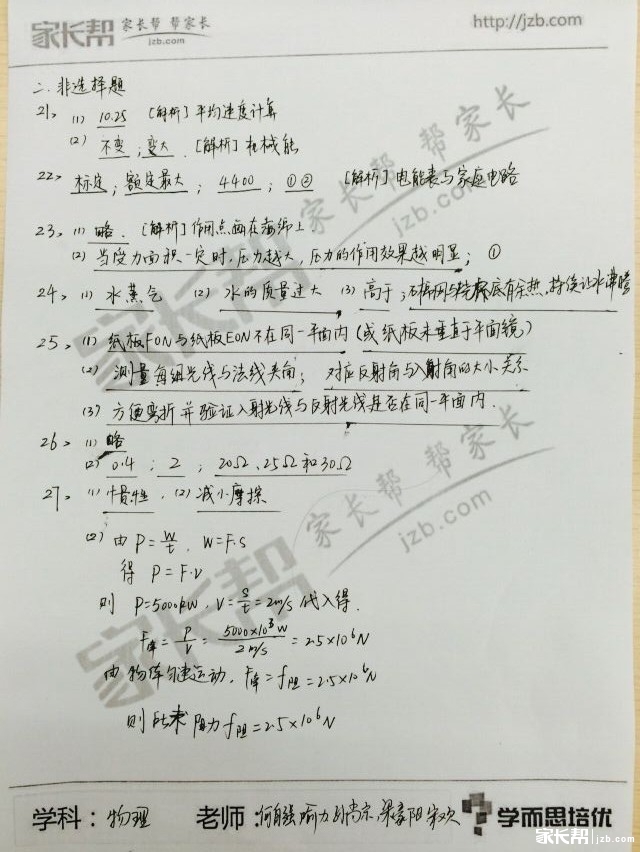 家长帮 家长帮 帮家长 jzb.com http://jzb.com
二.非选择题
21、(1) 10.25 [解析]平均速度计算
(2) 不变;变大.[解析]机械能
22、标定;额定最大;4400;①② [解析]电能表与家庭电路
23、(1)略.[解析]作用点画在海绵上
(2)当受力面积一定时,压力越大,压力的作用效果越明显;①
24、(1)水蒸气 (2)水的质量过大 (3)高于;石棉网与烧杯底有余热,持续让水沸腾
25、(1)纸板FON与纸板EON不在同一平面内(或纸板未垂直于平面镜)
(2)测量每组光线与法线夹角;对应反射角与入射角的大小关系
(3)方便弯折并验证入射光线与反射光线是否在同一平面内.
26、(1)略
(2) 0.4;2;20Ω、25Ω和30Ω
27、(1)惯性.(2)减小摩擦
(2)由P=W/t.W=F·s
得 P=F·v
则 P=5000kW.V=s/t=2m/s代入得.
F牵=P/V=5000×10³W/2m/s=2.5×10⁶N
由物体匀速运动.F牵=f阻=2.5×10⁶N
则 阻力f阻=2.5×10⁶N
学科:物理 老师: 学而思培优
家长帮 帮家长
jzb.com
家长帮 帮家长
jzb.com
家长帮
家长帮 jzb.com